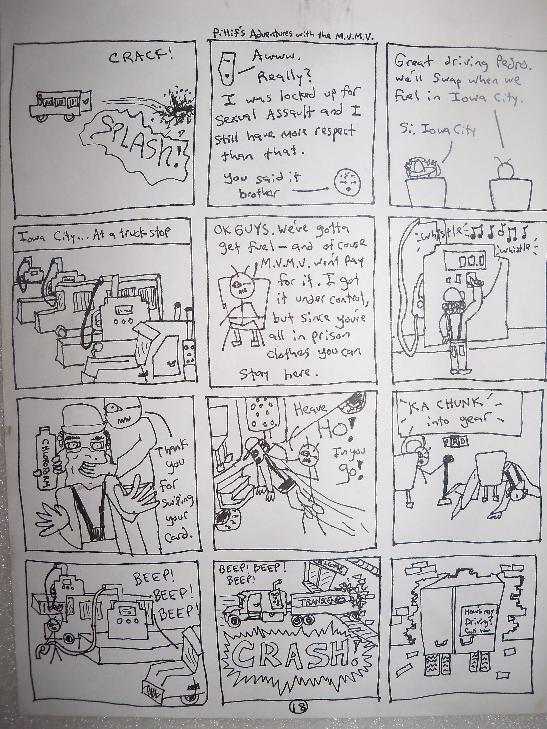 Pillif's Adventures with the M.V.M.V.
CRACK!
SPLASH!
Awww.
Really?
I was locked up for
Sexual Assault and I
still have more respect
than that.
You said it
brother
Great driving Pedro.
We'll swap when we
fuel in Iowa City.
Si. Iowa City
Iowa City... At a truck stop
OK GUYS. We've gotta
get fuel - and of course
M.V.M.V. won't pay
for it. I got
it under control,
but since you're
all in prison
clothes you can
Stay here.
whistle
whistle
Thank
you
for
swiping
your
card.
Heave
Ho!
In you
go!
KA CHUNK
into gear
BEEP!
BEEP!
BEEP!
BEEP! BEEP!
BEEP!
CRASH!
How's my
Driving?
Call now
18